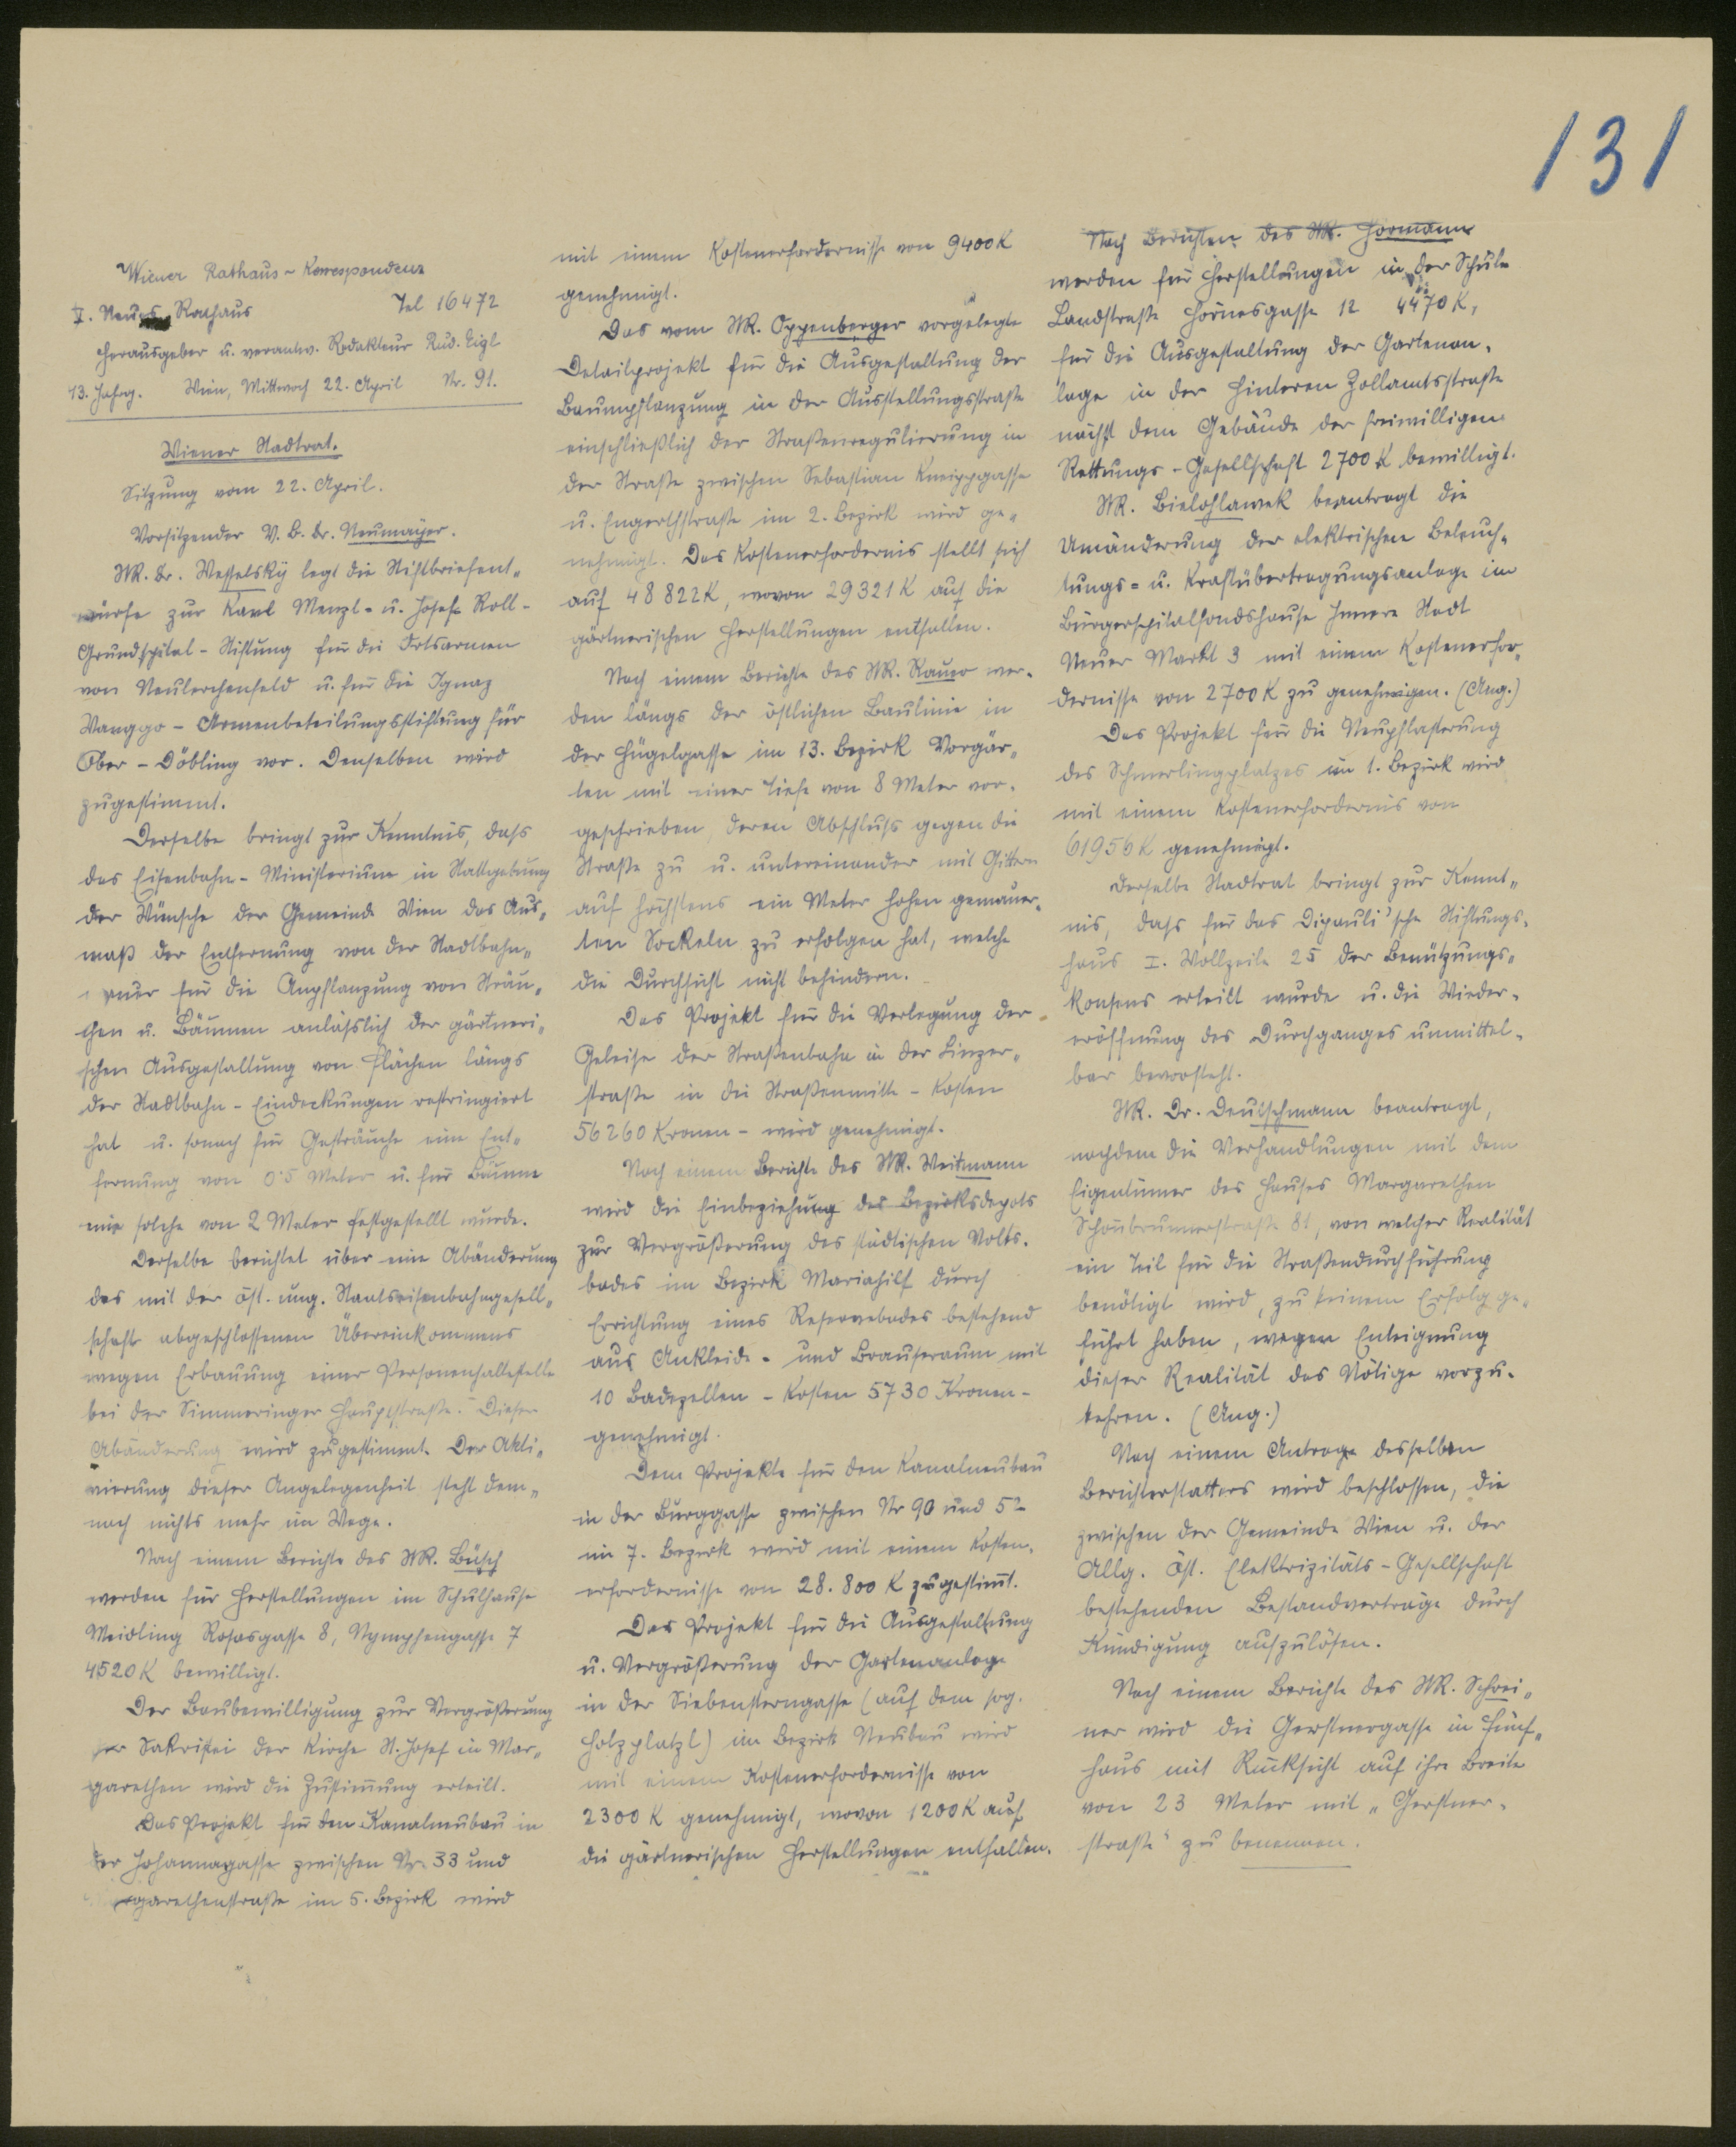 131
Wiener Rathaus-Korrespondenz
I. Neues Rathaus Tel 16472
Herausgeber u. verantw. Redakteur Rud. Eigl
13. Jahrg. Wien, Mittwoch 22. April Nr. 91.
Wiener Stadtrat.
Sitzung vom 22. April.
Vorsitzender V. B. Dr. Neumayer.
StR. Dr. Wesselsky legt die Stiftbriefent-
würfe zur Karl Menzl- u. Josef Roll-
Grundspital-Stiftung für die Ortsarmen
von Neulerchenfeld u. für die Ignaz
Wanggo-Armenbeteilungsstiftung für
Ober-Döbling vor. Denselben wird
zugestimmt.
Derselbe bringt zur Kenntnis, dass
das Eisenbahn-Ministerium in Stattgebung
der Wünsche der Gemeinde Wien das Aus-
maß der Entfernung von der Stadtbahn-
mauer für die Anpflanzung von Sträu-
chen u. Bäumen anlässlich der gärtneri-
schen Ausgestaltung von Flächen längs
der Stadtbahn-Eindeckungen restringiert
hat u. sonach für Gesträuche eine Ent-
fernung von 0·5 Meter u. für Bäume
eine solche von 2 Meter festgestellt wurde.
Derselbe berichtet über eine Abänderung
des mit der öst. ung. Staatseisenbahngesell-
schaft abgeschlossenen Übereinkommens
wegen Erbauung einer Personenhaltestelle
bei der Simmeringer Hauptstraße. Dieser
Abänderung wird zugestimmt. Der Akti-
vierung dieser Angelegenheit steht dem-
nach nichts mehr im Wege.
Nach einem Berichte des StR. Büsch
werden für Herstellungen im Schulhause
Meidling Rosasgasse 8, Nymphengasse 7
4520 K bewilligt.
Der Baubewilligung zur Vergrößerung
der Sakristei der Kirche St. Josef in Mar-
garethen wird die Zustimmung erteilt.
Das Projekt für den Kanalneubau in
der Johannagasse zwischen Nr. 33 und
Margarethenstraße im 5. Bezirk wird
mit einem Kostenerfordernisse von 9400 K
genehmigt.
Das vom StR. Oppenberger vorgelegte
Detailprojekt für die Ausgestaltung der
Baumpflanzung in der Ausstellungsstraße
einschließlich der Straßenregulierung in
der Straße zwischen Sebastian Kneippgasse
u. Engerthstraße im 2. Bezirk wird ge-
nehmigt. Das Kostenerfordernis stellt sich
auf 48822 K, wovon 29321 K auf die
gärtnerischen Herstellungen entfallen.
Nach einem Berichte des StR. Rauer wer-
den längs der östlichen Baulinie in
der Hügelgasse im 13. Bezirk Vorgär-
ten mit einer Tiefe von 8 Meter vor-
geschrieben, deren Abschluss gegen die
Straße zu u. untereinander mit Gittern
auf höchstens ein Meter hohen gemauer-
ten Sockeln zu erfolgen hat, welche
die Durchsicht nicht behindern.
Das Projekt für die Verlegung der
Geleise der Straßenbahn in der Linzer-
straße in die Straßenmitte - Kosten
56260 Kronen - wird genehmigt.
Nach einem Berichte des StR. Weitmann
wird die Einbeziehung des Bezirksdepots
zur Vergrößerung des städtischen Volks-
bades im Bezirk Mariahilf durch
Errichtung eines Reservebades bestehend
aus Ankleide- und Brauseraum mit
10 Badezellen - Kosten 5730 Kronen -
genehmigt.
Dem Projekte für den Kanalneubau
in der Burggasse zwischen Nr 90 und 52
im 7. Bezirk wird mit einem Kosten-
erfordernisse von 28.800 K zugestimmt.
Das Projekt für die Ausgestaltung
u. Vergrößerung der Gartenanlage
in der Siebensterngasse (auf dem sog.
Holzplatzl) im Bezirk Neubau wird
mit einem Kostenerfordernisse von
2300 K genehmigt, wovon 1200 K auf
die gärtnerischen Herstellungen entfallen.
Nach Berichten des StR. Hörmann
werden für Herstellungen in der Schule
Landstraße Hörnesgasse 12 4470 K,
für die Ausgestaltung der Gartenan-
lage in der Hinteren Zollamtsstraße
nächst dem Gebäude der freiwilligen
Rettungs-Gesellschaft 2700 K bewilligt.
StR. Bielohlawek beantragt die
Umänderung der elektrischen Beleuch-
tungs- u. Kraftübertragungsanlage im
Bürgerspitalfondshause Innere Stadt
Neuer Markt 3 mit einem Kostenerfor-
dernisse von 2700 K zu genehmigen. (Ang.)
Das Projekt für die Neupflasterung
des Schmerlingplatzes im 1. Bezirk wird
mit einem Kostenerfordernis von
61956 K genehmigt.
Derselbe Stadtrat bringt zur Kennt-
nis, dass für das Dipauli'sche Stiftungs-
haus I. Wollzeile 25 der Benützungs-
konsens erteilt wurde u. die Wieder-
eröffnung des Durchganges unmittel-
bar bevorsteht.
StR. Dr. Deutschmann beantragt,
nachdem die Verhandlungen mit dem
Eigentümer des Hauses Margarethen
Schönbrunnerstraße 81, von welcher Realität
ein Teil für die Straßendurchführung
benötigt wird, zu keinem Erfolg ge-
führt haben, wegen Enteignung
dieser Realität das Nötige vorzu-
kehren. (Ang.)
Nach einem Antrage desselben
Berichterstatters wird beschlossen, die
zwischen der Gemeinde Wien u. der
Allg. Öst. Elektrizitäts-Gesellschaft
bestehenden Bestandverträge durch
Kündigung aufzulösen.
Nach einem Berichte des StR. Schrei-
ner wird die Gerstnergasse in Fünf-
haus mit Rücksicht auf ihre Breite
von 23 Meter mit „Gerstner-
straße" zu benennen.